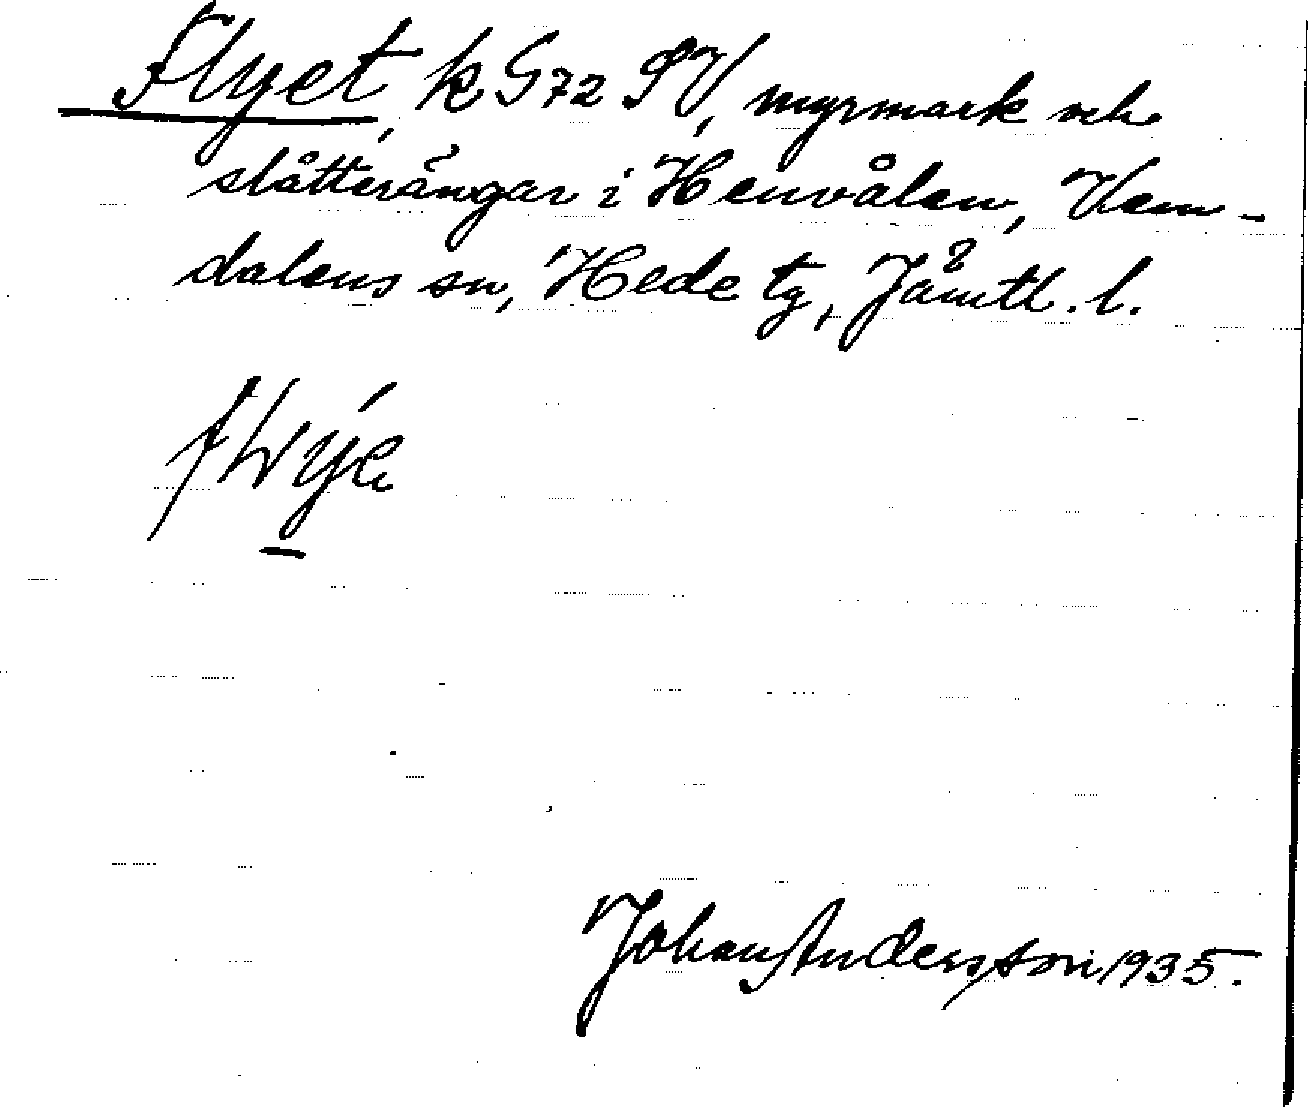 Flyet, k G72 SV, myrmark och
slåtterängar i Henvålen, Vem-
dalens sn, Hede tg, Jämtl. l.
Johan Andersson 1935.